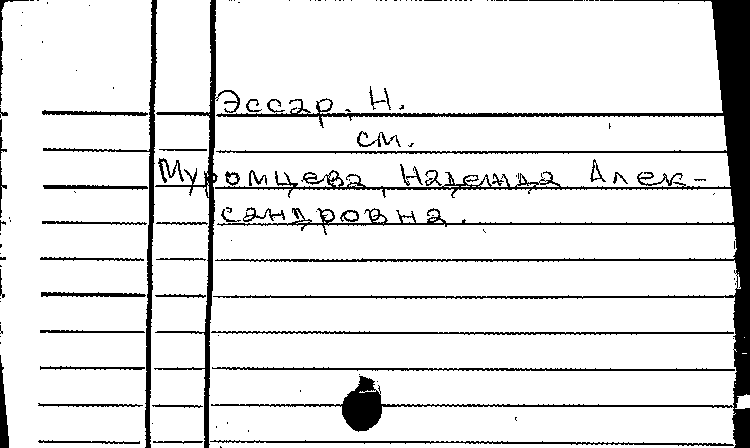 Эссар, Н.
см.
Муромцева, Надежда Алек-
сандровна.